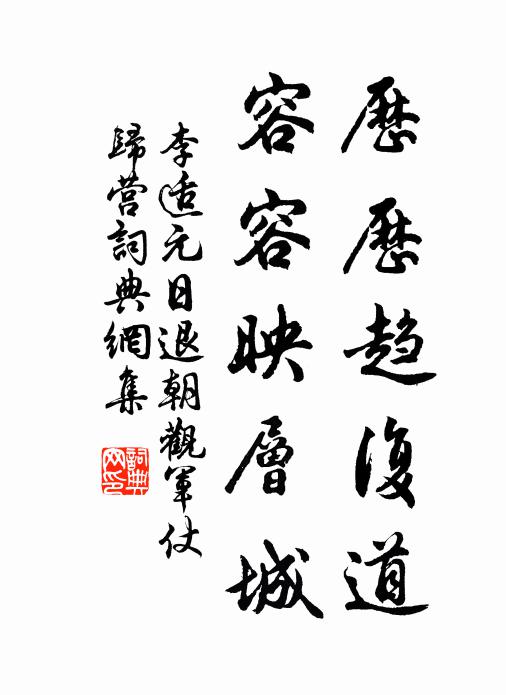 歷歷趨復道
容容映層城
李适元日退朝觀軍仗
歸營詞典網集
詞典網印